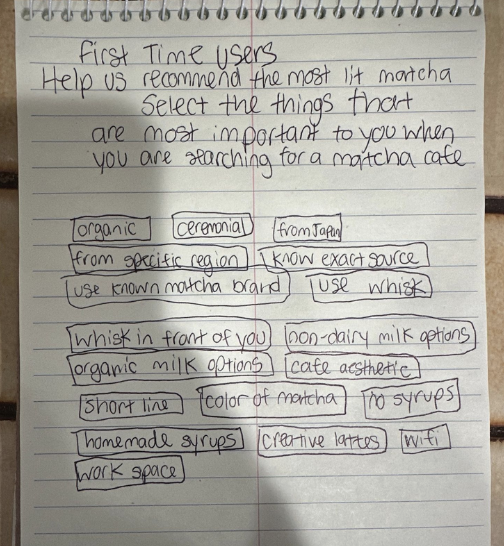 First Time Users
Help us recommend the most lit matcha
Select the things that
are most important to you when
you are searching for a matcha cafe
organic ceremonial from Japan
from specific region know exact source
use known matcha brand use whisk
whisk in front of you non-dairy milk options
organic milk options cafe aesthetic
short line color of matcha no syrups
homemade syrups creative lattes wifi
work space